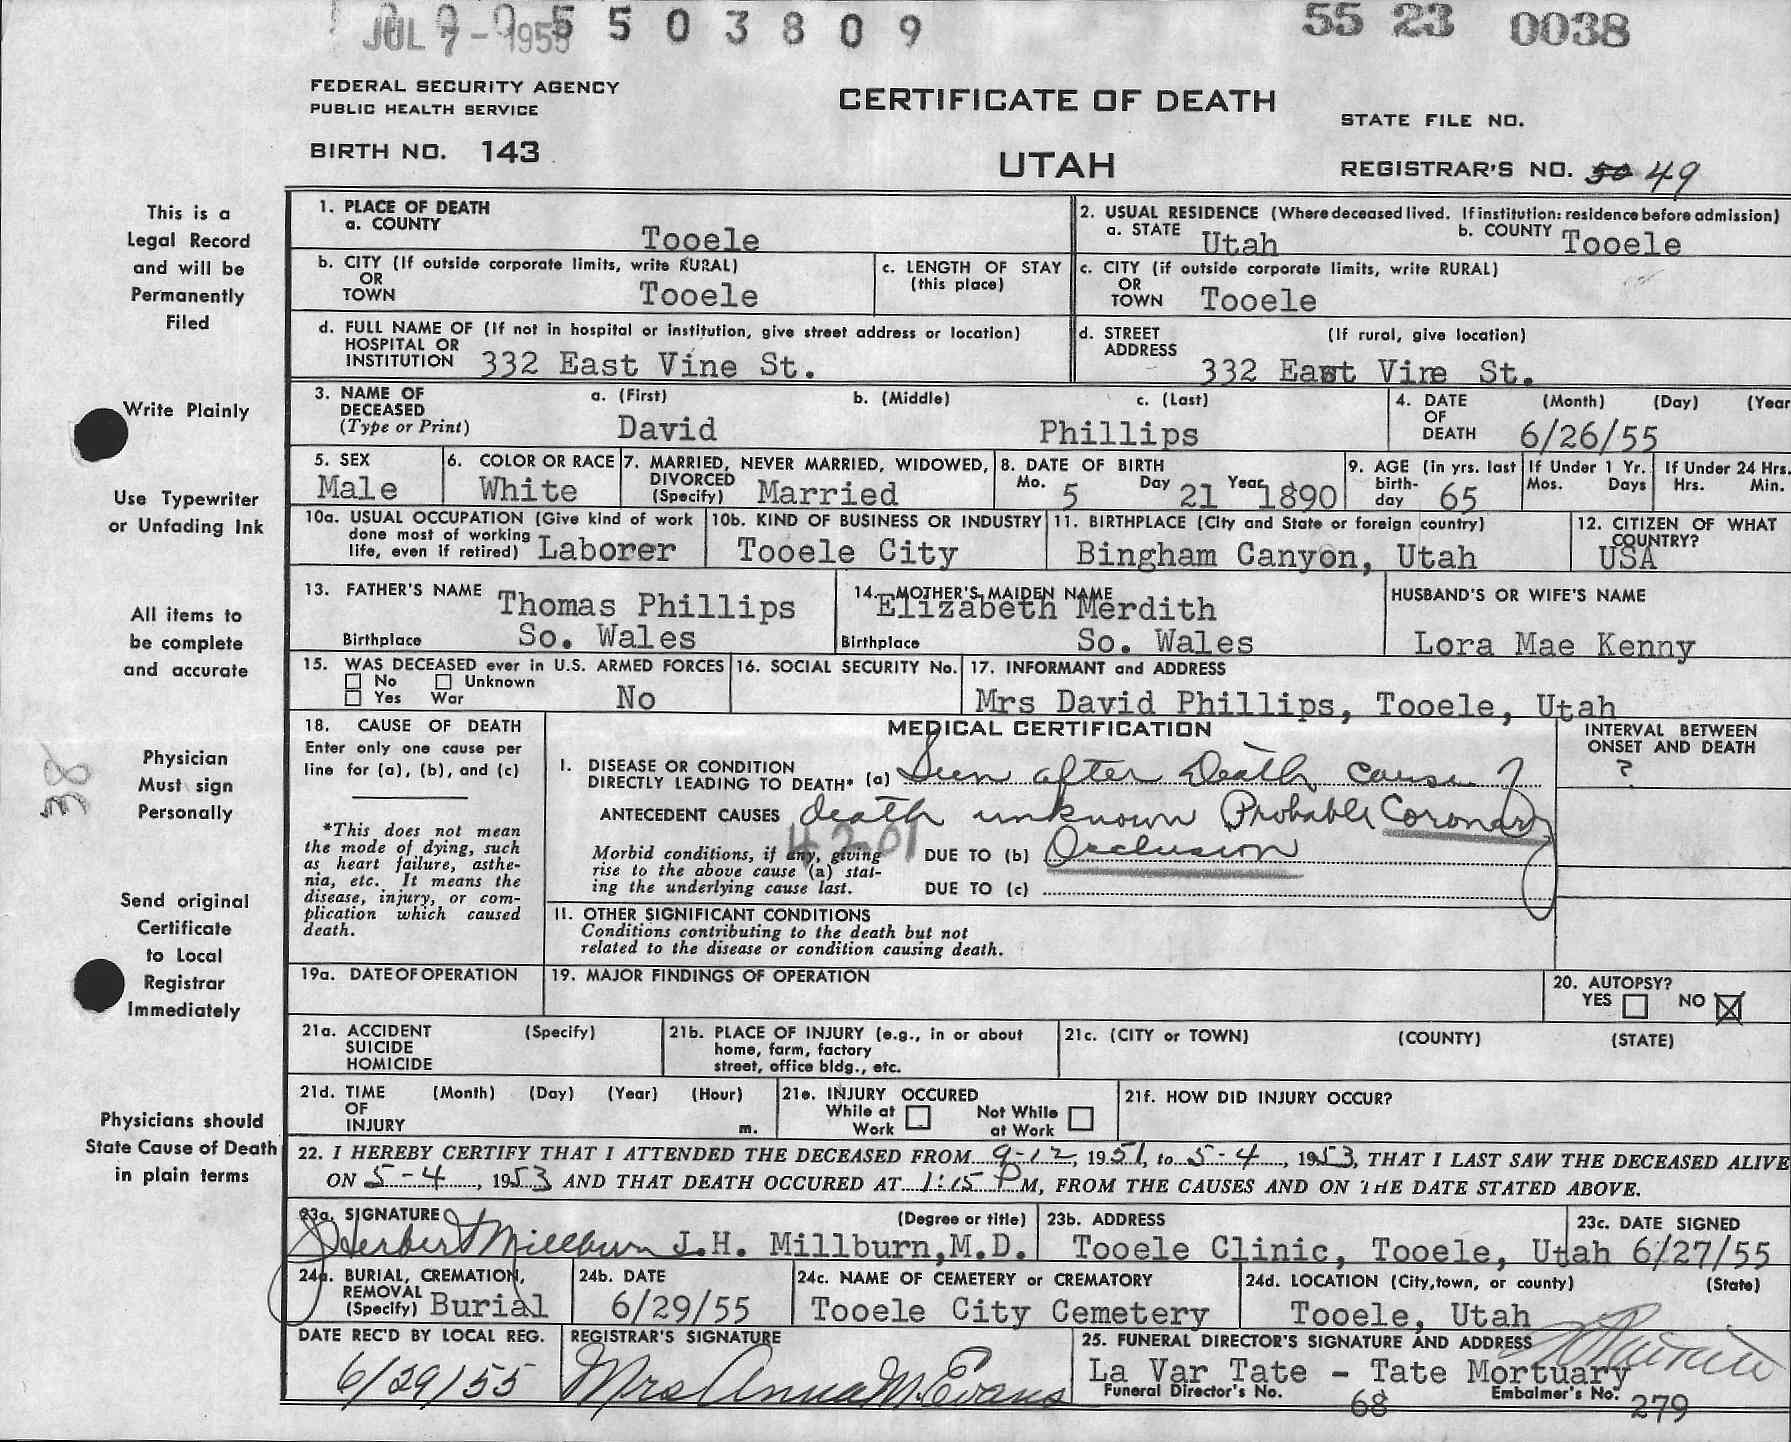 JUL 7 - 1955 5 5 0 3 8 0 9 55 23 0038
FEDERAL SECURITY AGENCY
PUBLIC HEALTH SERVICE
CERTIFICATE OF DEATH
STATE FILE NO.
BIRTH NO. 143
UTAH
REGISTRAR'S NO. 50 49
This is a
Legal Record
and will be
Permanently
Filed
Write Plainly
Use Typewriter
or Unfading Ink
All items to
be complete
and accurate
Physician
Must sign
Personally
38
Send original
Certificate
to Local
Registrar
Immediately
Physicians should
State Cause of Death
in plain terms
1. PLACE OF DEATH
a. COUNTY Tooele
2. USUAL RESIDENCE (Where deceased lived. If institution: residence before admission)
a. STATE Utah b. COUNTY Tooele
b. CITY (If outside corporate limits, write RURAL)
OR
TOWN Tooele
c. LENGTH OF STAY
(this place)
c. CITY (if outside corporate limits, write RURAL)
OR
TOWN Tooele
d. FULL NAME OF (If not in hospital or institution, give street address or location)
HOSPITAL OR
INSTITUTION 332 East Vine St.
d. STREET (If rural, give location)
ADDRESS
332 East Vine St.
3. NAME OF a. (First) b. (Middle) c. (Last)
DECEASED
(Type or Print) David Phillips
4. DATE (Month) (Day) (Year
OF
DEATH 6/26/55
5. SEX
Male
6. COLOR OR RACE
White
7. MARRIED, NEVER MARRIED, WIDOWED,
DIVORCED
(Specify) Married
8. DATE OF BIRTH
Mo. 5 Day 21 Year 1890
9. AGE (in yrs. last
birth-
day 65
If Under 1 Yr.
Mos. Days
If Under 24 Hrs.
Hrs. Min.
10a. USUAL OCCUPATION (Give kind of work
done most of working
life, even if retired) Laborer
10b. KIND OF BUSINESS OR INDUSTRY
Tooele City
11. BIRTHPLACE (City and State or foreign country)
Bingham Canyon, Utah
12. CITIZEN OF WHAT
COUNTRY?
USA
13. FATHER'S NAME Thomas Phillips
Birthplace So. Wales
14. MOTHER'S MAIDEN NAME
Elizabeth Merdith
Birthplace So. Wales
HUSBAND'S OR WIFE'S NAME
Lora Mae Kenny
15. WAS DECEASED ever in U.S. ARMED FORCES
No Unknown
Yes War No
16. SOCIAL SECURITY No.
17. INFORMANT and ADDRESS
Mrs David Phillips, Tooele, Utah
18. CAUSE OF DEATH
Enter only one cause per
line for (a), (b), and (c)
*This does not mean
the mode of dying, such
as heart failure, asthe-
nia, etc. It means the
disease, injury, or com-
plication which caused
death.
MEDICAL CERTIFICATION
I. DISEASE OR CONDITION
DIRECTLY LEADING TO DEATH* (a) Seen after Death cause ?
ANTECEDENT CAUSES death unknown Probable Coronary
4201
Morbid conditions, if any, giving
rise to the above cause (a) stat-
ing the underlying cause last.
DUE TO (b) Occlusion
DUE TO (c)
INTERVAL BETWEEN
ONSET AND DEATH
?
II. OTHER SIGNIFICANT CONDITIONS
Conditions contributing to the death but not
related to the disease or condition causing death.
19a. DATE OF OPERATION
19. MAJOR FINDINGS OF OPERATION
20. AUTOPSY?
YES NO
21a. ACCIDENT (Specify)
SUICIDE
HOMICIDE
21b. PLACE OF INJURY (e.g., in or about
home, farm, factory
street, office bldg., etc.
21c. (CITY or TOWN) (COUNTY) (STATE)
21d. TIME (Month) (Day) (Year) (Hour)
OF
INJURY m.
21e. INJURY OCCURED
While at Work
Not While at Work
21f. HOW DID INJURY OCCUR?
22. I HEREBY CERTIFY THAT I ATTENDED THE DECEASED FROM 9-12, 1951, to 5-4, 1953, THAT I LAST SAW THE DECEASED ALIVE
ON 5-4, 1953 AND THAT DEATH OCCURED AT 1:15 P M, FROM THE CAUSES AND ON THE DATE STATED ABOVE.
23a. SIGNATURE (Degree or title)
J Herbert Millburn J.H. Millburn,M.D.
23b. ADDRESS
Tooele Clinic, Tooele, Utah
23c. DATE SIGNED
6/27/55
24a. BURIAL, CREMATION,
REMOVAL
(Specify) Burial
24b. DATE
6/29/55
24c. NAME OF CEMETERY or CREMATORY
Tooele City Cemetery
24d. LOCATION (City, town, or county) (State)
Tooele, Utah
DATE REC'D BY LOCAL REG.
6/29/55
REGISTRAR'S SIGNATURE
Mrs Anna M. Evans
25. FUNERAL DIRECTOR'S SIGNATURE AND ADDRESS
La Var Tate - Tate Mortuary
Funeral Director's No. 68 Embalmer's No. 279